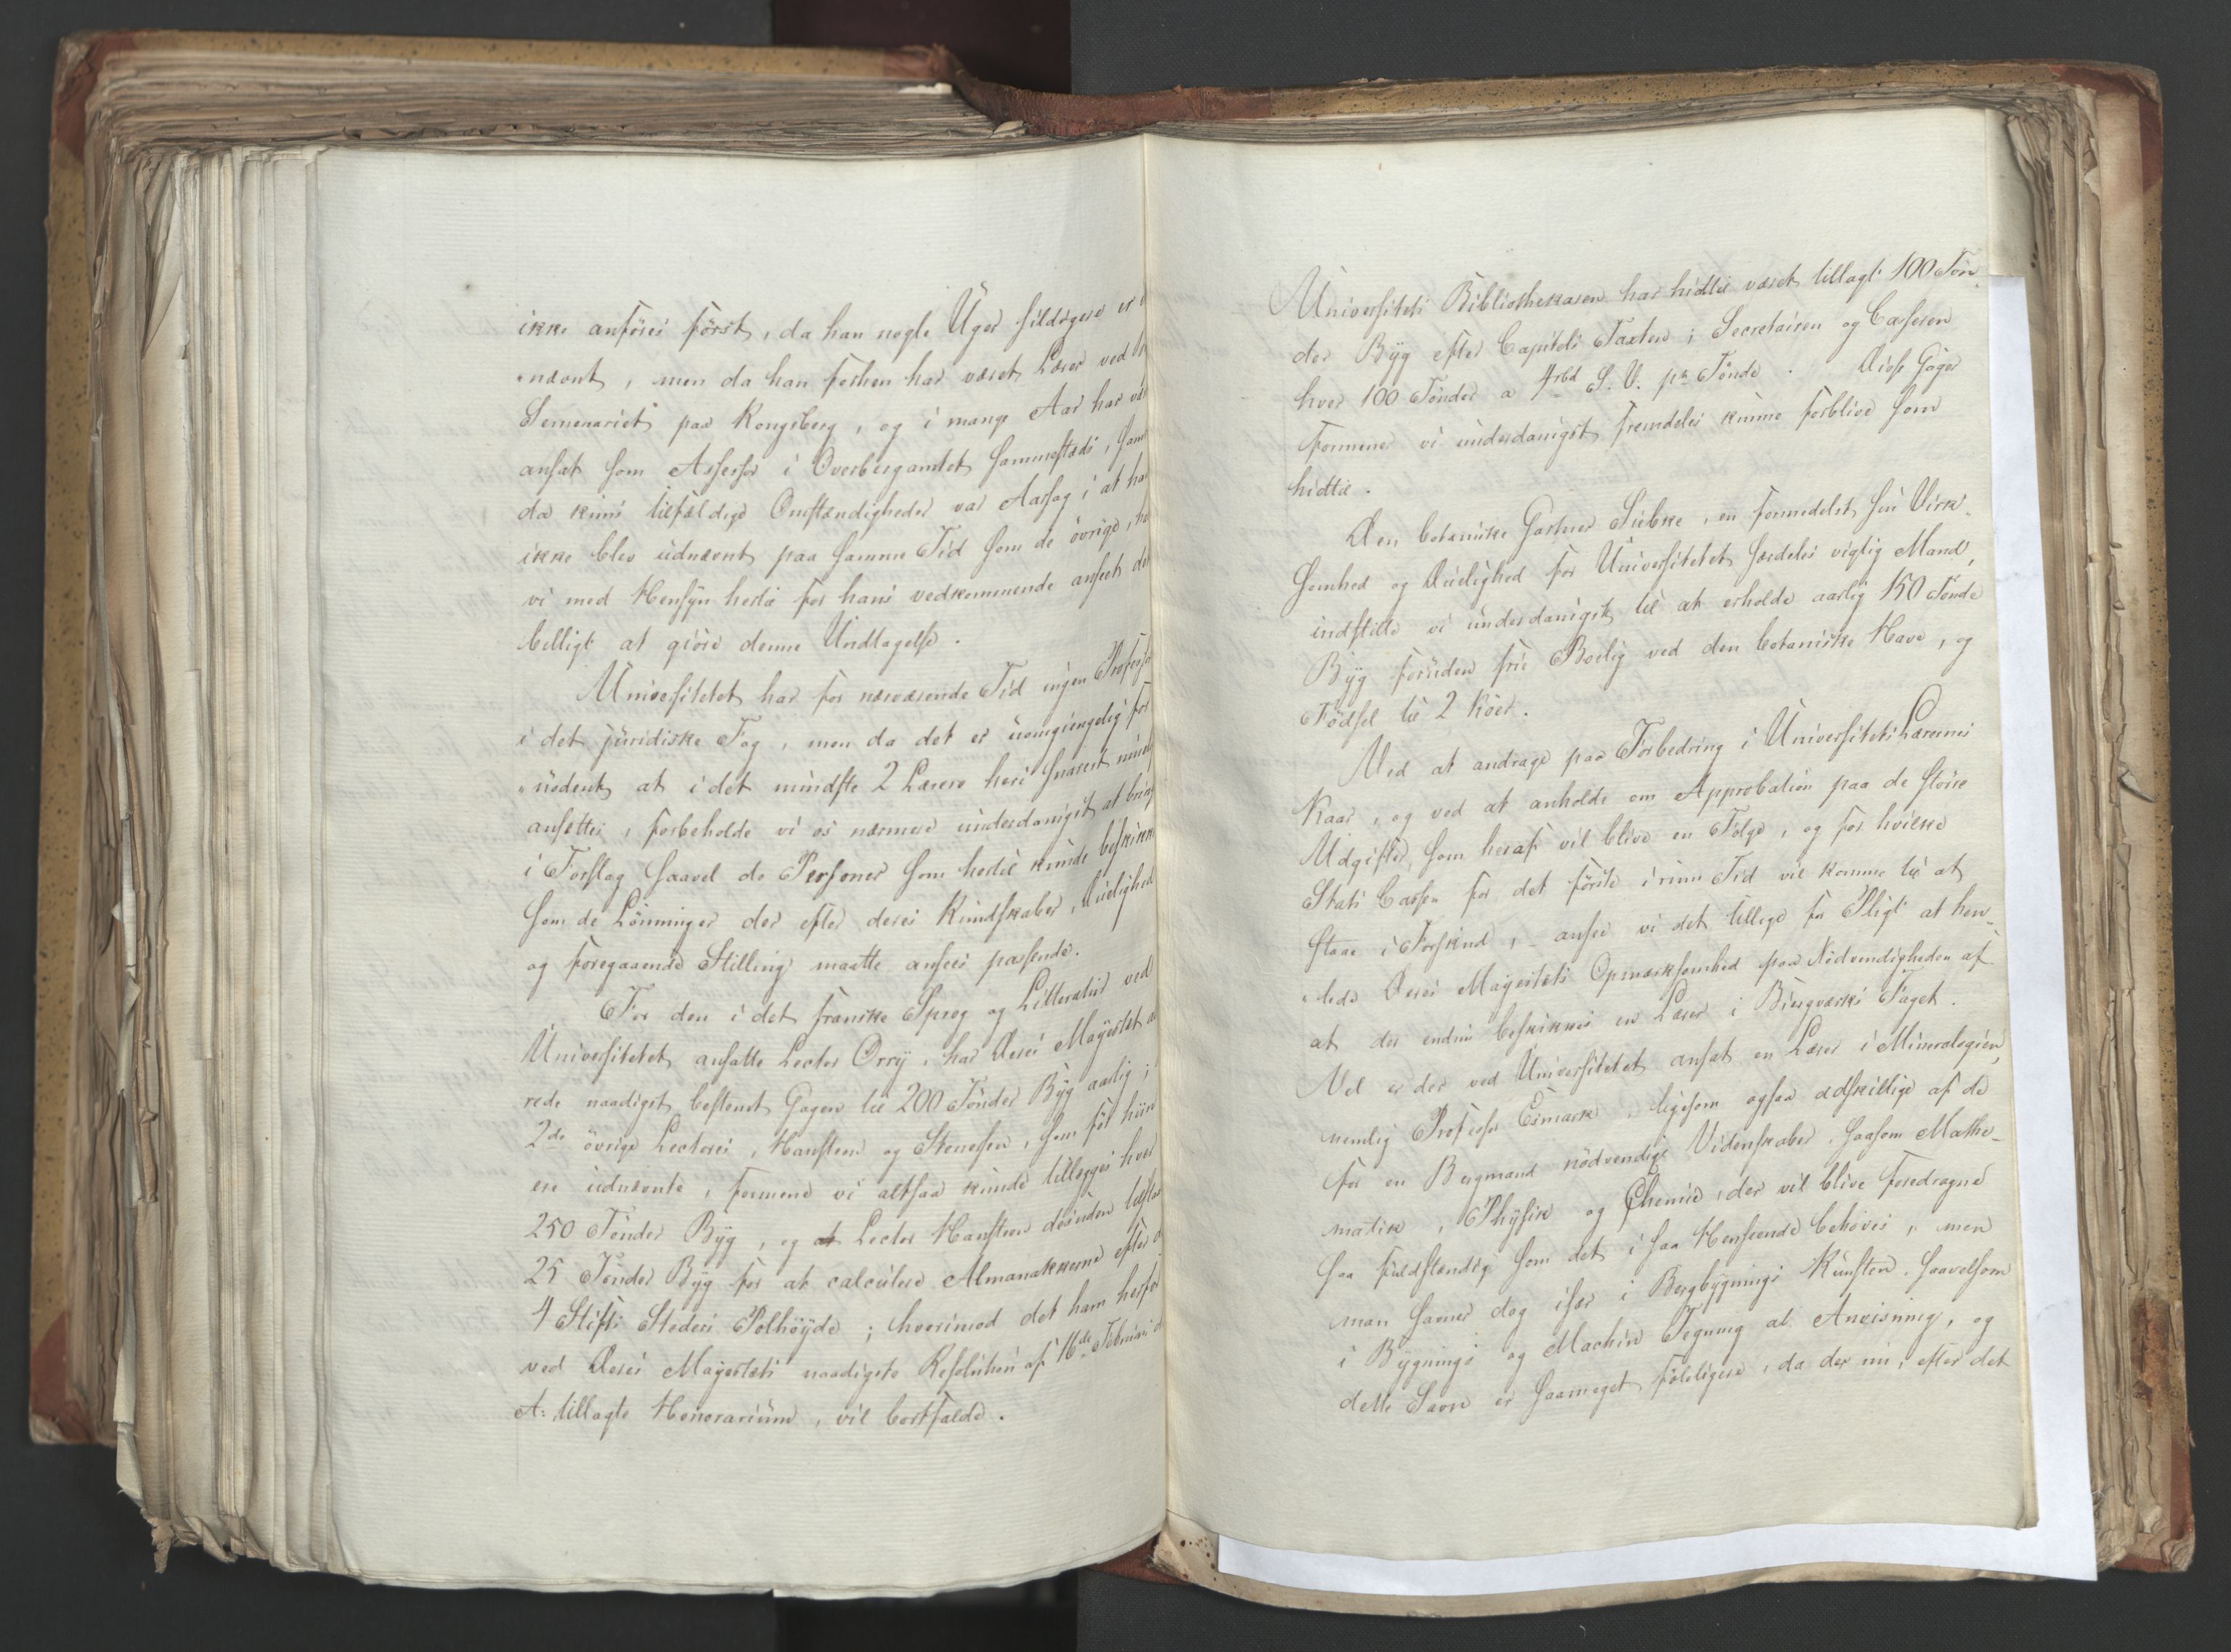 ikke anføres først, da han nogle Uger sildigere er
nævnt, men da han forhen har været Lærer ved
Semenariet paa Kongsberg, og i mange Aar har
ansat som Assessor i Overbergamtet sammesteds, samt
da kuns tilfældige Omstændigheder var Aarsag i at han
ikke blev udnævnt paa samme Tid som de øvrige,
vi med Hensyn hertil for hans vedkommende anseet det
billigt at giøre denne Undtagelse.
Universitetet har for nærværende Tid ingen Professor
i det juridiske Fag, men da det er uomgiengelig for
nødent at i det mindste 2 Lærere heri snarest
ansættes, forbeholde vi os nærmere underdanigst at bringe
i Forslag saavel de Personer som hertil kunde beskikkes
som de Lønninger der efter deres Kundskaber, Duelighed
og foregaaende Stilling maatte ansees passende.
For den i det franske Sprog og Litteratur ved
Universitetet ansatte Lector Orry, har Deres Mayestet al
rede naadigst bestemt Gagen til 200 Tønder Byg aarlig;
2de øvrige Lectores, Hansteen og Stenersen, som før hiin
ere udnævnte, formene vi altsaa kunde tillægges hver
250 Tønder Byg, og at Lector Hansteen desuden
25 Tønder Byg for at calculere Almanakkerne efter
4 Stifts Steders Polhøyde; hvorimod det ham herfor
ved Deres Mayestæts naadigste Resolution af 16de Februari
A: tillagte Honorarium, vil bortfalde.
Universitets Bibliothekaren har hidtil været tillagt 100 Tøn
der Byg efter Capitels Taxten; Secretairen og Casseren
hver 100 Tønder a 4rbd S. V. pr Tønde. Disse Gager
formene vi underdanigst fremdeles kunne forblive som
hidtil.
Den botaniske Gartner Siebke, en formedelst sin Virk-
somhed og Duelighed for Universitetet særdeles vigtig Mand,
indstille vi underdanigst til at erholde aarlig 150 Tønde
Byg foruden frie Boelig ved den botaniske Have, og
Fødsel til 2 Køer.
Ved at andrage paa Forbedring i Universitets Lærernes
Kaar, og ved at anholde om Approbation paa de større
Udgifter, som heraf vil blive en Følge, og for hvilke
Stats Cassen for det første i nun Tid vil komme til at
staae i Forskud, ansee vi det tillige for Pligt at hen-
lede Deres Mayestæts Opmærksomhed paa Nødvendigheden af
at der endnu beskikkes en Lærer i Biergværks Faget.
Vel er der ved Universitetet ansat en Lærer i Mineralogien,
nemlig Professor Esmark, ligesom ogsaa adskillige af de
for en Bergmand nødvendige Videnskaber, saasom Mathe-
matik, Physik og Chemie, der vil blive foredragne
saa fuldstændig som det i saa Henseende behøves, men
man savner dog især i Bergbygnings Kunsten, saavelsom
i Bygnings og Machin Tegning al Anvisning, og
dette Savn er saameget føleligere, da der nu, efter det